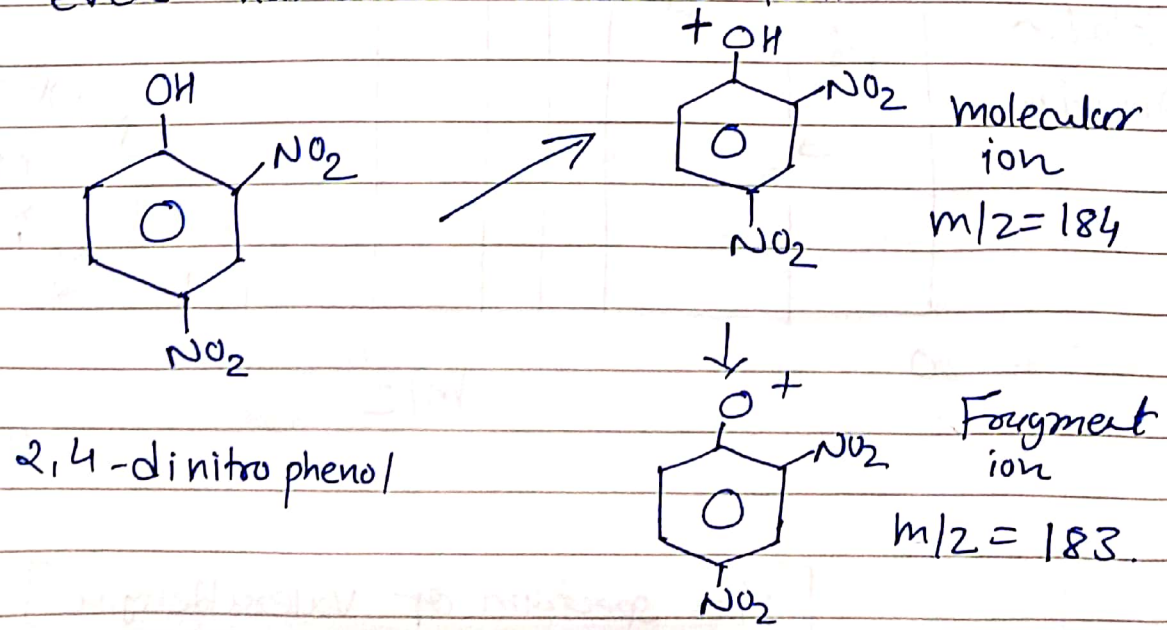 OH
NO2
NO2
2,4-dinitrophenol
+
OH
NO2
NO2
molecular
ion
m/z=184
O+
NO2
NO2
Fragment
ion
m/z = 183.